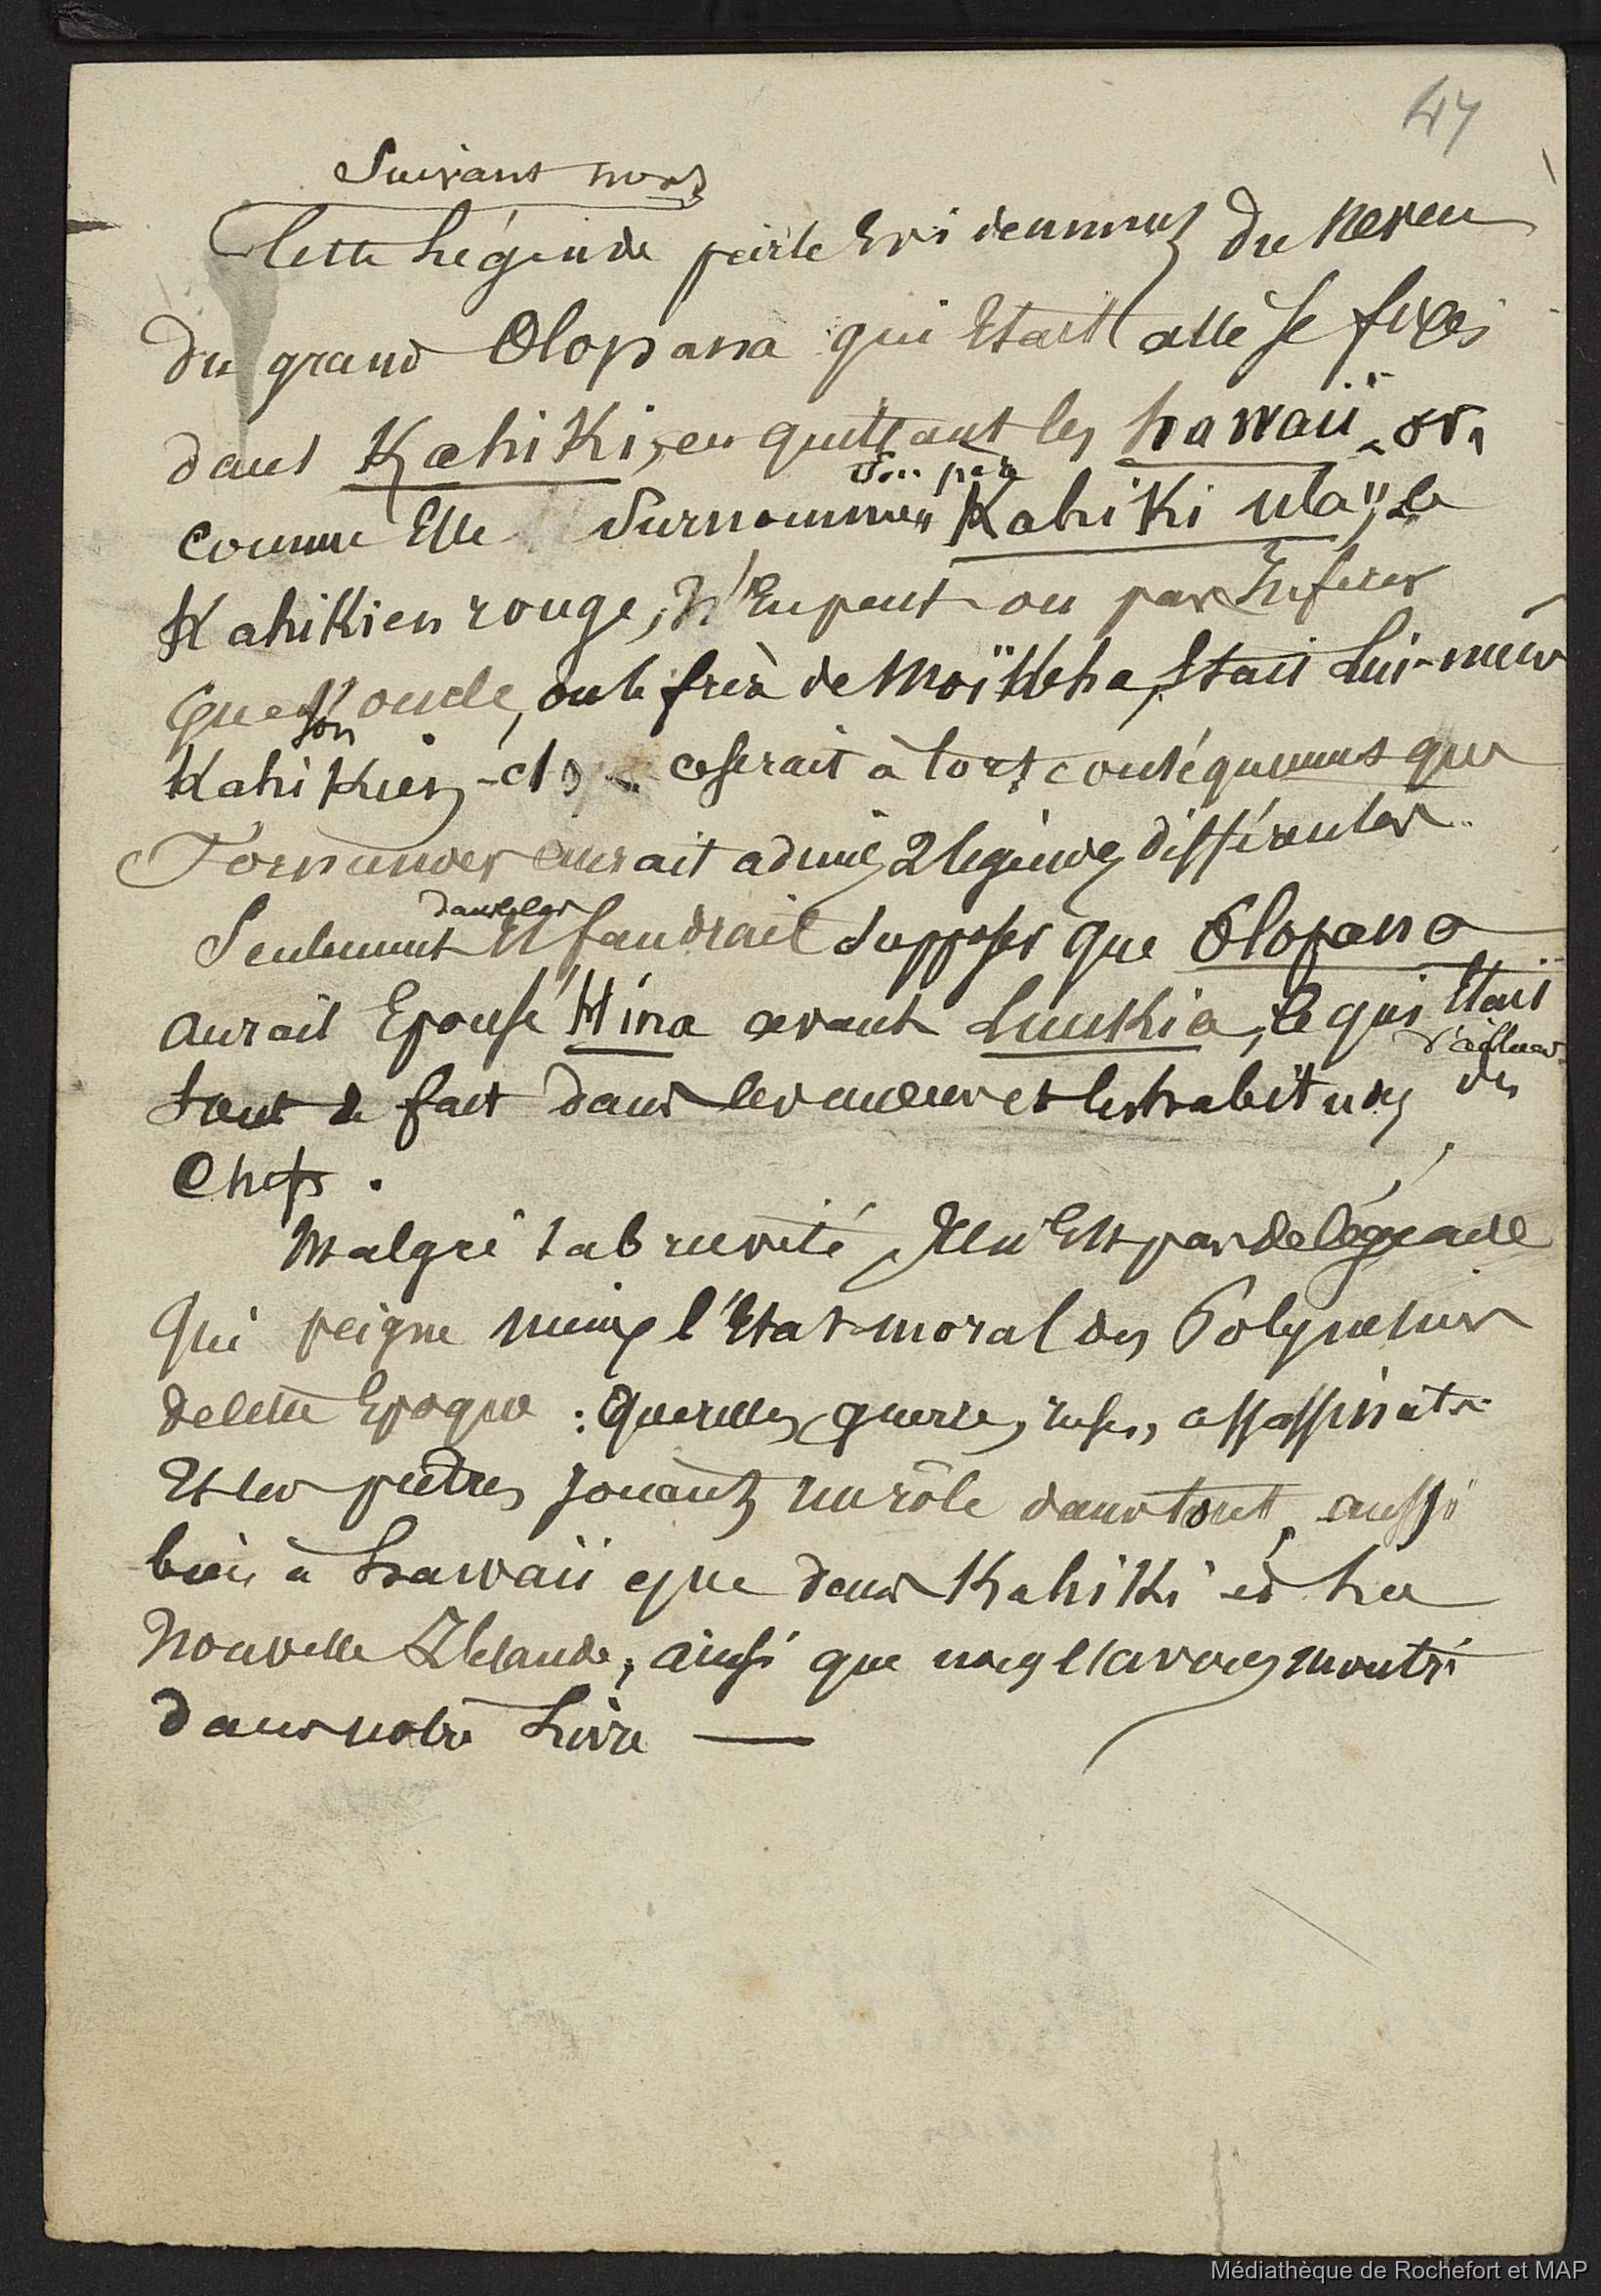 47
Suivant nous
Cette Légende parle Evidemment du neveu
du grand Olopana qui Etait allé se fixer
dans Kahiki, en quittant les hawaii. or,
comme Elle surnomme son père "Kahiki ula", le
Kahikien rouge, N'En peut-on pas Inférer
que son oncle, ou le frère de Moïkeha, Etait Lui-même
Kahikien - et ce serait à tort conséquemment que
Fornander aurait admis 2 légendes différentes.
Seulement dans ce cas Il faudrait supposer que Olopana
aurait Epousé Hina avant Luukia, ce qui Etait d'ailleurs
tout à fait dans les moeurs et les habitudes des
Chefs.
Malgré sa brièveté, Il n'Est pas de légende
Qui peigne mieux l'Etat moral des Polynésiens
de cette Epoque : querelles, guerres, ruses, assassinats
Et les prêtres jouant un rôle dans tout, aussi
bien à hawaii que dans Kahiki et La
Nouvelle Zélande, ainsi que nous l'avons montré
dans notre Livre —
Médiathèque de Rochefort et MAP